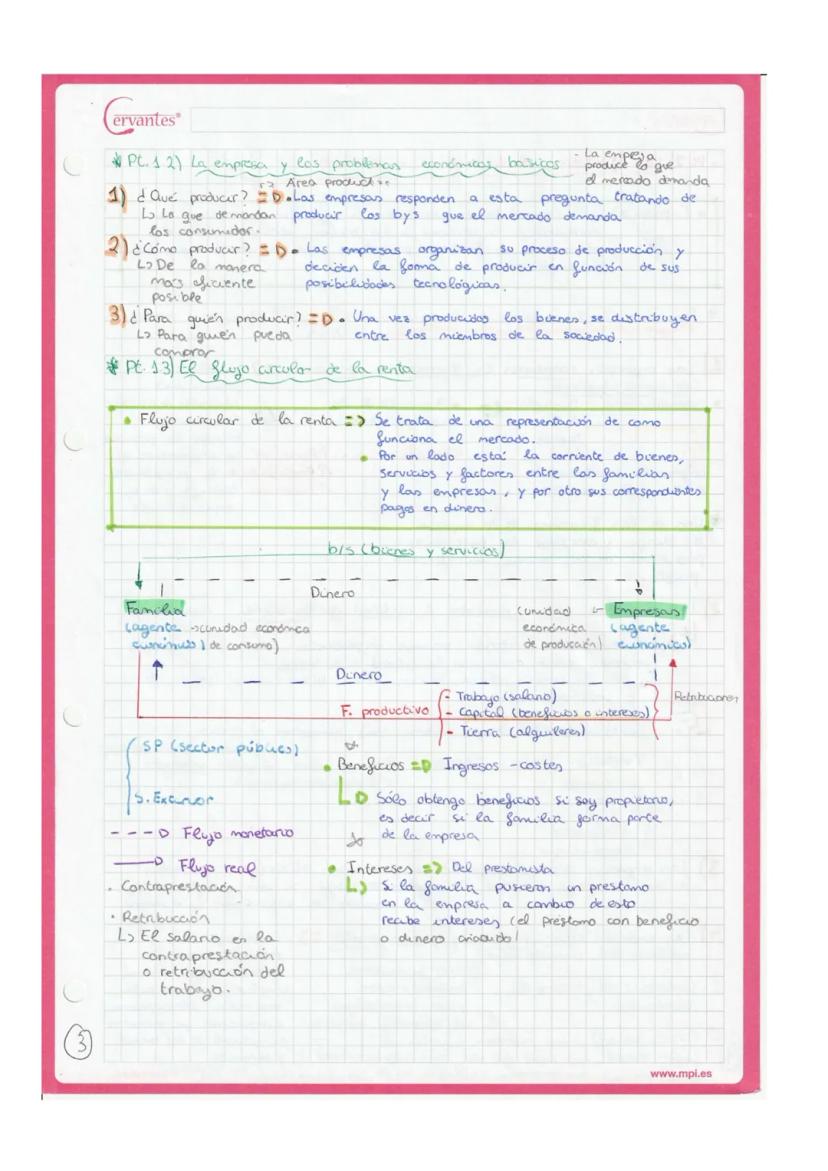 Cervantes®
* Pt. 1 2) La empresa y los problemas económicos básicos
- La empesa
produce lo que
el mercado demanda
Área productiva
1) ¿Qué producir? => • Las empresas responden a esta pregunta tratando de
↳ Lo que demandan producir los bys que el mercado demanda
los consumidor.
2) ¿Cómo producir? => • Las empresas organizan su proceso de producción y
↳ De la manera deciden la forma de producir en función de sus
más eficiente posibilidades tecnológicas.
posible
3) ¿Para quién producir? => • Una vez producidos los bienes, se distribuyen
↳ Para quien pueda entre los miembros de la sociedad.
comprar
* Pt. 1 3) El flujo circular de la renta
• Flujo circular de la renta => Se trata de una representación de como
funciona el mercado.
• Por un lado está la corriente de bienes,
servicios y factores entre las familias
y las empresas, y por otro sus correspondientes
pagos en dinero.
b/s (bienes y servicios)
Dinero
Familia
(agente → (unidad económica
económico) de consumo)
(unidad ← Empresas
económica (agente
de producción) económico)
Dinero
F. productivo
- Trabajo (salario)
- Capital (beneficios o intereses)
- Tierra (alquileres)
Retribuciones
SP (sector público)
S. Exterior
---▷ Flujo monetario
—▷ Flujo real
• Contraprestación
• Retribucción
↳ El salario es la
contraprestación
o retribucción del
trabajo.
• Beneficios => Ingresos - costes
↳ Sólo obtengo beneficios si soy propietario,
es decir si la familia forma parte
de la empresa
• Intereses => Del prestamista
↳ Si la familia pusieron un prestamo
en la empresa a cambio de esto
recibe intereses (el préstamo con beneficio
o dinero añadido)
3
www.mpi.es